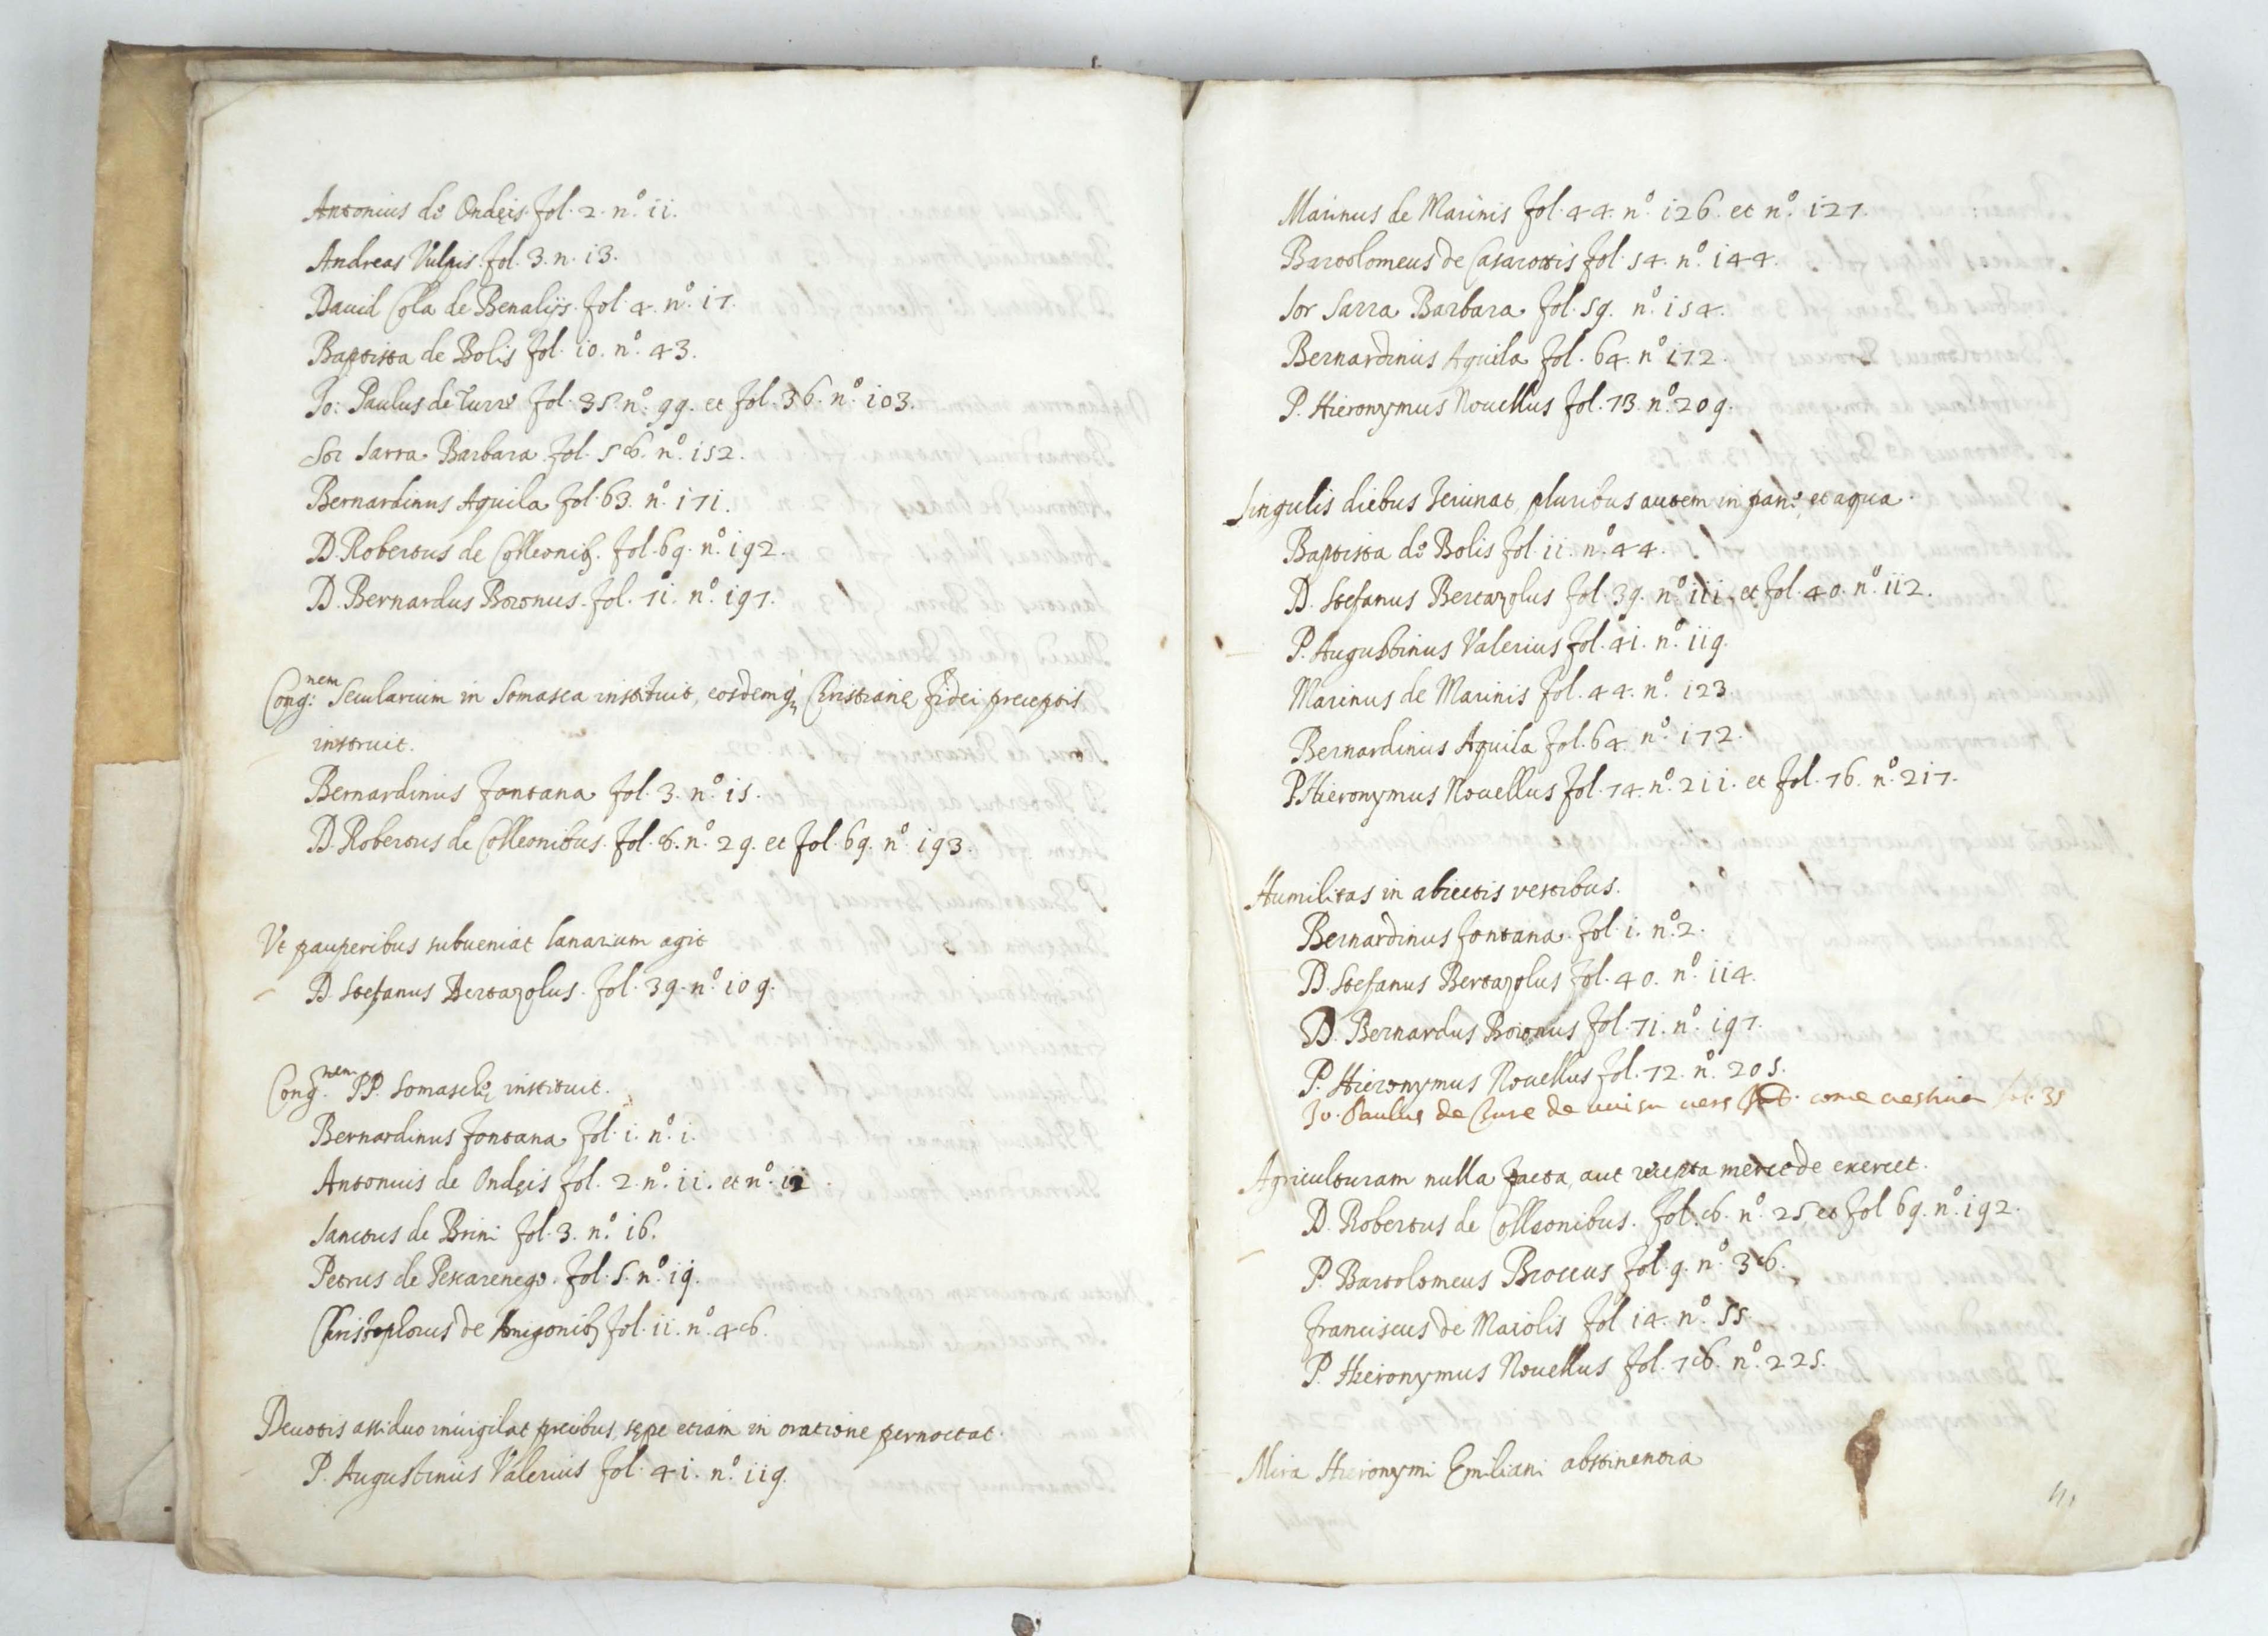 Antonius de Ondeis. fol. 2. nº. ii.
Andreas Vulpis. fol. 3. n. i3.
Dauid Cola de Benalijs. fol. 4. nº. i7.
Baptista de Bolis fol. io. nº. 43.
Jo: Paulus de Turre fol. 35. nº. 99. et fol. 36. nº. io3.
Sor Sarra Barbara. fol. 58. nº. i52.
Bernardinus Aquila fol. 63. nº. i7i.
D. Robertus de Colleonib9. fol. 69. nº. i92.
D. Bernardus Boronus. fol. 7i. nº. i97.
Cong:nem Secularium in Somasca instituit, eosdemq; Christianę fidei preceptis
instruit.
Bernardinus Fontana fol. 3. nº. i5.
D. Robertus de Colleonibus. fol. 8. nº. 29. et fol. 69. nº. i93.
Vt pauperibus subueniat lanarium agit
D. Stefanus Bertazolus. fol. 39. nº. io9.
Cong.nem PP. Somaschę instituit.
Bernardinus Fontana fol. i. nº. i.
Antonius de Ondeis fol. 2. nº. ii. et nº. i2.
Sanctus de Brini fol. 3. nº. i6.
Petrus de Pescarenego. fol. 5. nº. i9.
Christophorus de fol. ii. nº. 48.
Deuotis assiduo inuigilat precibus, sępe etiam in oratione pernoctat.
P. Augustinus Valerius fol. 4i. nº. ii9.
Marinus de Marinis fol. 44. nº. i26. et nº. i27.
Bartolomeus de Casarottis fol. 54. nº. i44.
Sor Sarra Barbara fol. 59. nº. i54.
Bernardinus Aquila fol. 64. nº i72.
P. Hieronymus Nouellus fol. 73. nº. 209.
Singulis diebus Ieiunat, pluribus autem in pane, et aqua.
Baptista de Bolis fol. ii. nº. 44.
D. Stefanus Bertazolus fol. 39. nº. iii. et fol. 40. nº. ii2.
P. Augustinus Valerius fol. 4i. nº. ii9.
Marinus de Marinis fol. 44. nº. i23.
Bernardinus Aquila fol. 64. nº. i72.
P. Hieronymus Nouellus fol. 74. nº. 2ii. et fol. 76. nº. 2i7.
Humilitas in abiectis vestibus.
Bernardinus Fontana. fol. i. nº. 2.
D. Stefanus Bertazolus fol. 40. nº. ii4.
D. Bernardus Boronus fol. 7i. nº. i97.
P. Hieronymus Nouellus fol. 72. nº. 205.
Jo. Paulus de Ture de come fol. 35
Agriculturam nulla pacta, aut recepta mercede exercet.
D. Robertus de Colleonibus. fol. 8. nº. 25. et fol 69. nº. i92.
P. Bartolomeus Broccus fol. 9. nº. 38.
Franciscus de Maiolis fol i4. nº. 55.
P. Hieronymus Nouellus fol. 78. nº. 225.
Mira Hieronymi Emiliani abstinentia